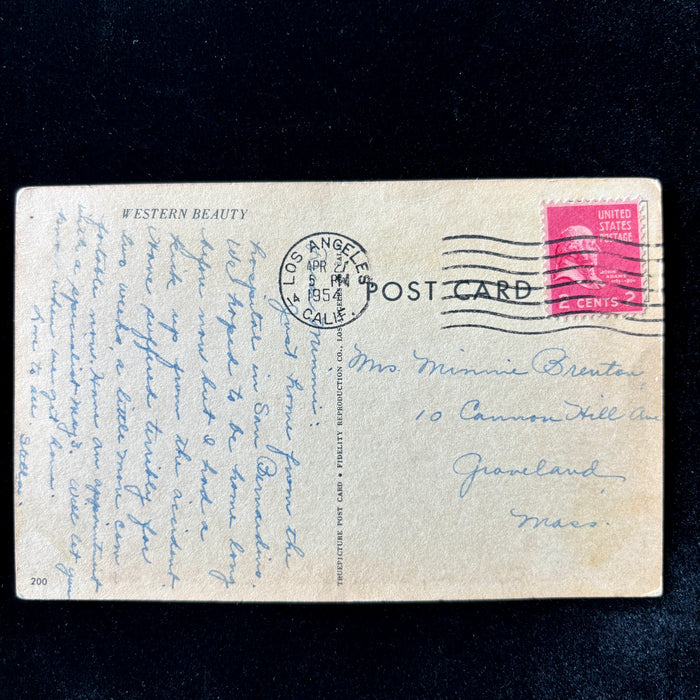 WESTERN BEAUTY
LOS ANGELES
APR 2
5 PM
1954
CALIF.
4
UNITED
STATES
POSTAGE
JOHN
ADAMS
2 CENTS 2
POST CARD
Minnie:
Just home from the
hospital in San Bernardino.
We hoped to be home long
before now but I had a
kick up from the accident
Have suffered terribly for
two weeks, a little more com
fortable now. Have an appointment
with a specialist May 3. Will let you
know when we get home.
Love to all.
Mrs. Minnie Brenton
10 Cannon Hill Ave
Groveland
Mass.
TRUEPICTURE POST CARD • FIDELITY REPRODUCTION CO., LOS
200